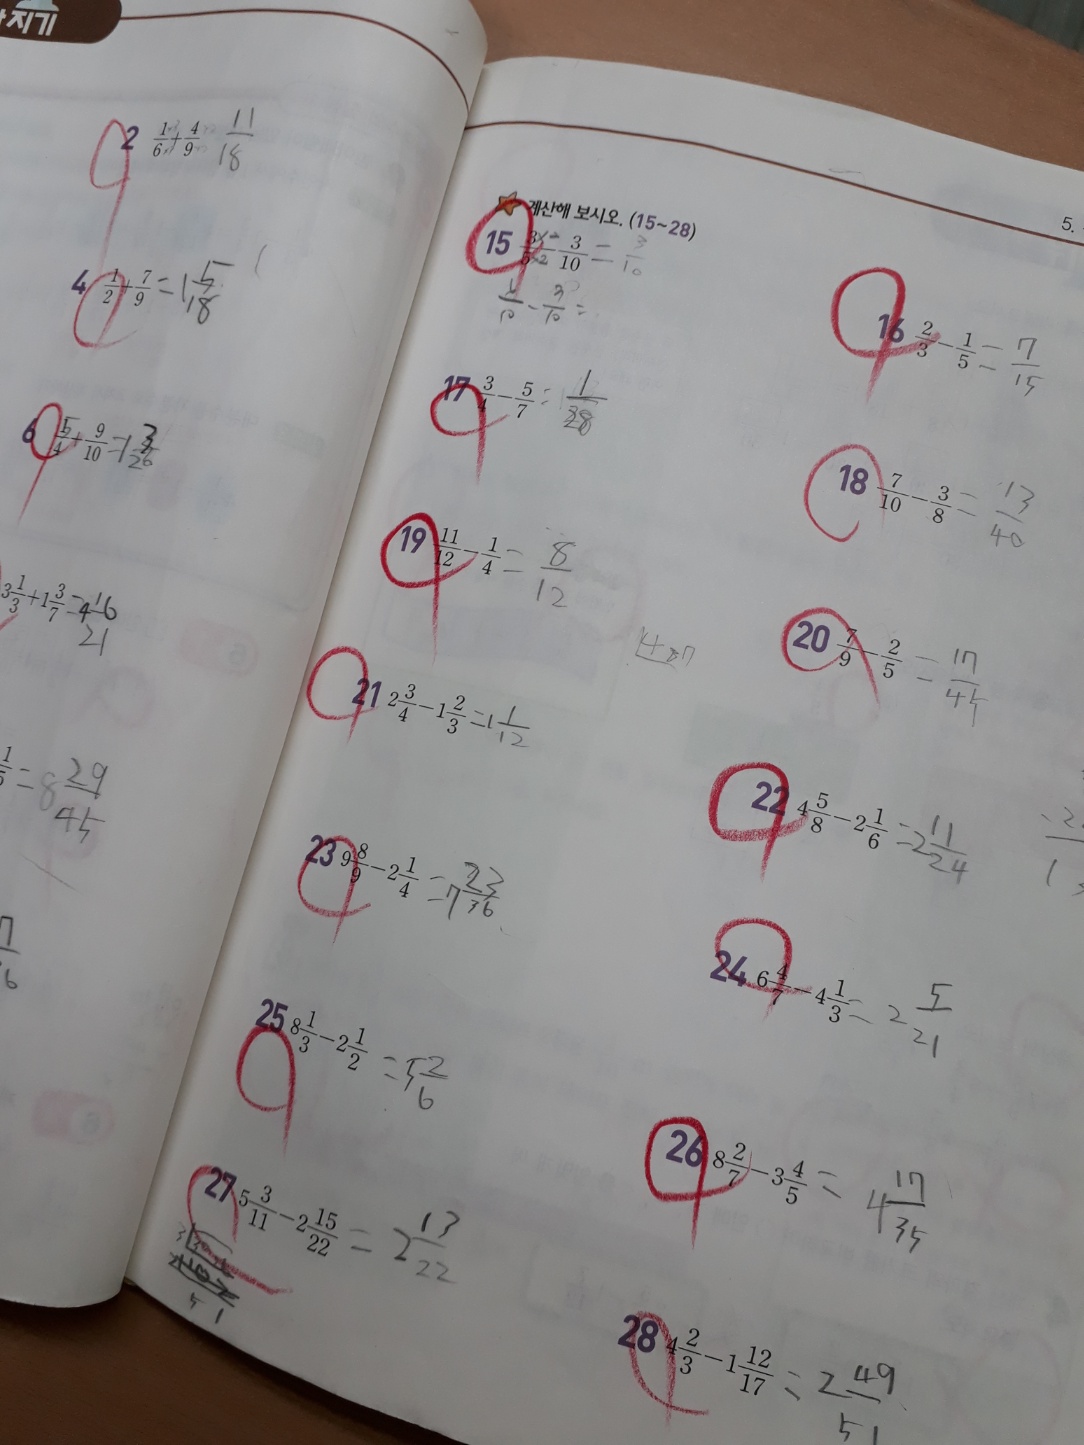 지기
2 1/6+4/9 11/18
4 1/2+7/9=1 5/18
6 5/4+9/10=1 3/20
3 1/3+1 3/7=4 16/21
1/5=8 29/45
계산해 보시오. (15~28)
5.
15 3/5-3/10=3/10
16 2/3-1/5=7/15
17 3/4-5/7=1/28
18 7/10-3/8=13/40
19 11/12-1/4=8/12
20 7/9-2/5=17/45
21 2 3/4-1 2/3=1 1/12
22 4 5/8-2 1/6=2 11/24
23 9 8/9-2 1/4=7 23/36
24 6 4/7-4 1/3=2 5/21
25 8 1/3-2 1/2=5 2/6
26 8 2/7-3 4/5=4 17/35
27 5 3/11-2 15/22=2 13/22
28 4 2/3-1 12/17=2 49/51